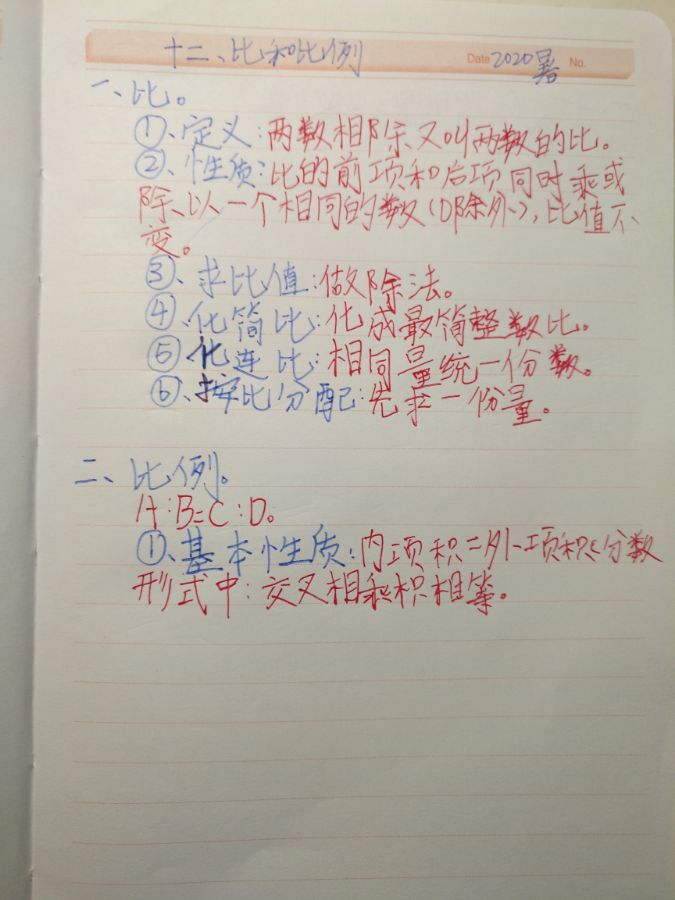 十二、比和比例 Date 2020暑 No.
一、比。
①、定义:两数相除又叫两数的比。
②、性质:比的前项和后项同时乘或
除以一个相同的数(0除外),比值不
变。
③、求比值:做除法。
④、化简比:化成最简整数比。
⑤、化连比:相同量统一份数。
⑥、按比分配:先求一份量。
二、比例。
A:B=C:D。
①、基本性质:内项积=外项积;分数
形式中:交叉相乘积相等。